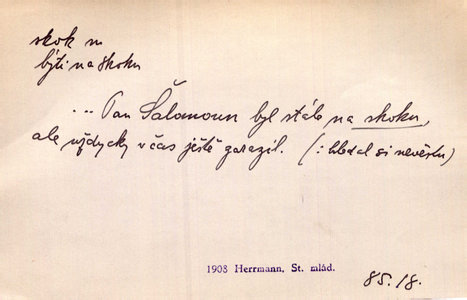 skok m
býti na skoku
... Pan Šalamoun byl stále na skoku,
ale vždycky včas ještě zarazil. (: hledal si nevěstu)
1908 Herrmann, St. mlád.
85.18.